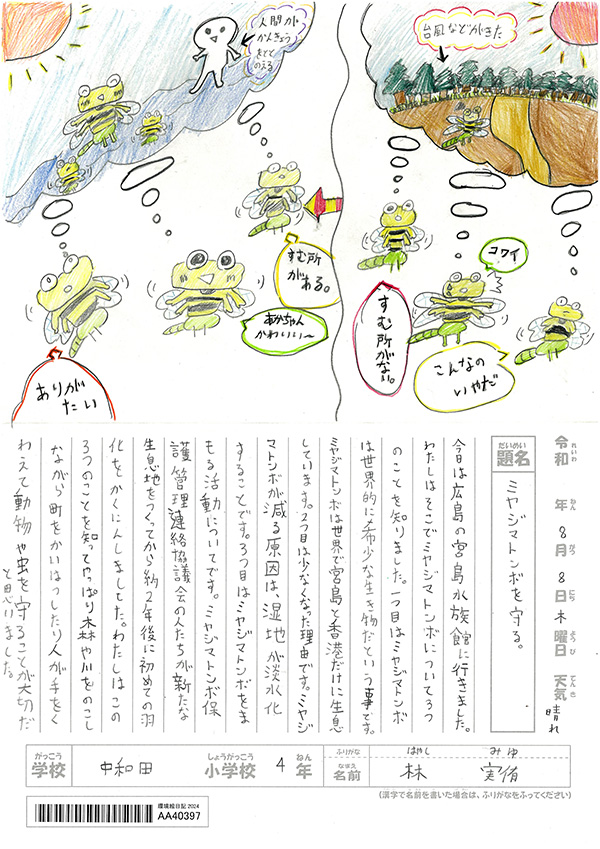 台風などがきた
コワイ
すむ所がない。
こんなの
いやだ
人間が
かんきょう
をとと
のえる
すむ所
がある。
あかちゃん
かわいい〜
ありが
たい
令和 年 8月 8日 木曜日 天気 晴れ
れいわ ねん がつ にち ようび てんき
だいめい
題名 ミヤジマトンボを守る。
今日は広島の宮島水族館に行きました。
わたしはそこでミヤジマトンボについて3つ
のことを知りました。一つ目はミヤジマトンボ
は世界的に希少な生き物だという事です。
ミヤジマトンボは世界で宮島と香港だけに生息
しています。2つ目は少なくなった理由です。ミヤジ
マトンボが減る原因は、湿地が淡水化
することです。3つ目はミヤジマトンボをま
もる活動についてです。ミヤジマトンボ保
護管理連絡協議会の人たちが新たな
生息地をつくってから約2年後に初めての羽
化をかくにんしましてた。わたしはこの
3つのことを知ってやっぱり森や川をのこし
ながら町をかいはつしたり人が手をく
わえて動物や虫を守ることが大切だ
と思いました。
がっこう しょうがっこう ねん ふりがな はやし みゆ
学校 中和田 小学校 4年 なまえ 名前 林 実侑
(漢字で名前を書いた場合は、ふりがなをふってください)
環境絵日記 2024
AA40397